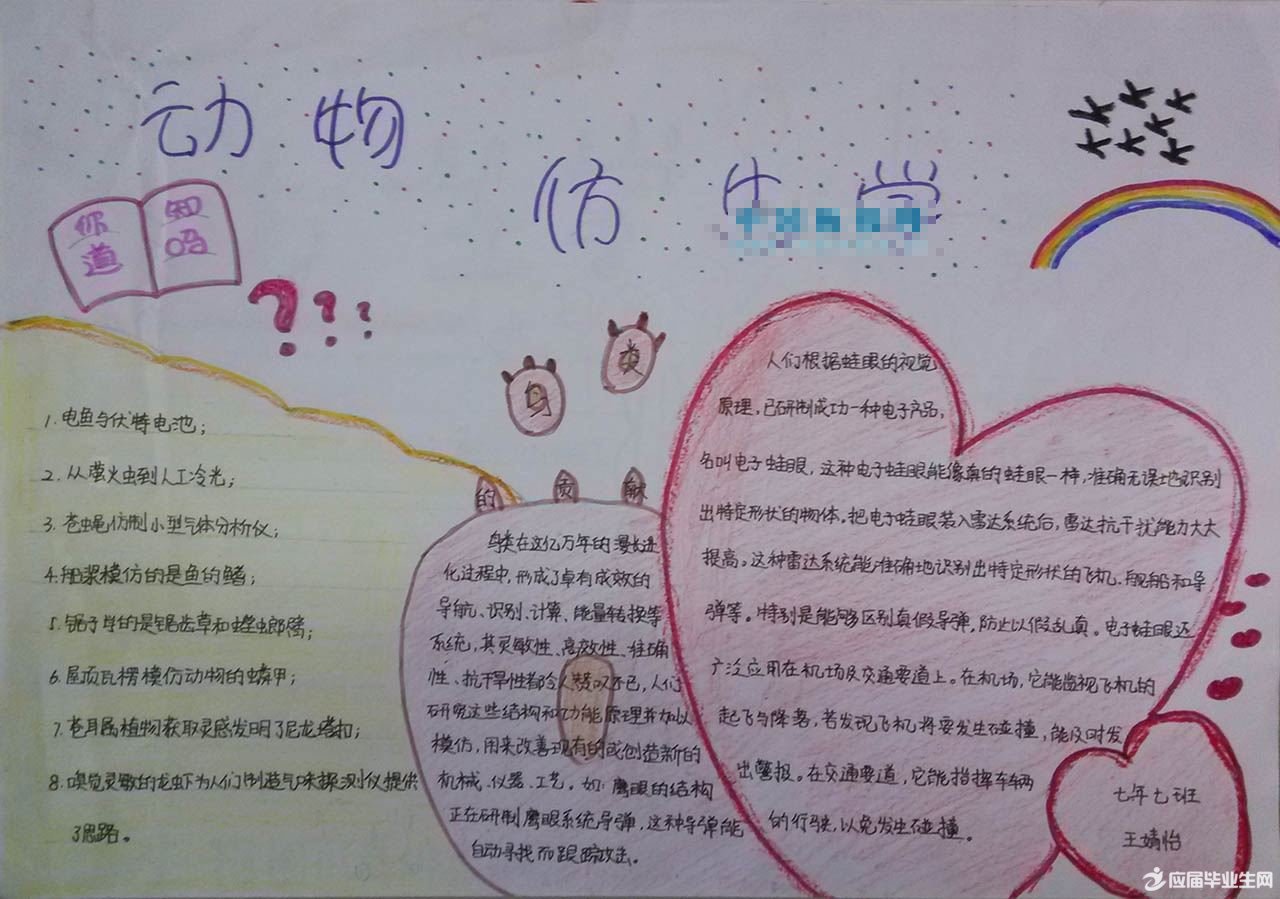 动物
仿生学
你知
道吗
???
1.电鱼与伏特电池;
2.从萤火虫到人工冷光;
3.苍蝇仿制小型气体分析仪;
4.船桨模仿的是鱼的鳍;
5.锯子学的是锯齿草和螳螂臂;
6.屋顶瓦楞模仿动物的鳞甲;
7.苍耳属植物获取灵感发明了尼龙搭扣;
8.嗅觉灵敏的龙虾为人们制造气味探测仪提供
了思路。
鸟类
的贡献
鸟类在这亿万年的漫长进
化过程中,形成了卓有成效的
导航、识别、计算、能量转换等
系统,其灵敏性、高效性、准确
性、抗干旱性都令人赞叹不已,人们
研究这些结构和功能原理并加以
模仿,用来改善现有的或创造新的
机械、仪器、工艺。如:鹰眼的结构
正在研制鹰眼系统导弹,这种导弹能
自动寻找而跟踪攻击。
人们根据蛙眼的视觉
原理,已研制成功一种电子产品,
名叫电子蛙眼,这种电子蛙眼能像真的蛙眼一样,准确无误地识别
出特定形状的物体,把电子蛙眼装入雷达系统后,雷达抗干扰能力大大
提高。这种雷达系统能准确地识别出特定形状的飞机、舰船和导
弹等。特别是能够区别真假导弹,防止以假乱真。电子蛙眼还
广泛应用在机场及交通要道上。在机场,它能监视飞机的
起飞与降落,若发现飞机将要发生碰撞,能及时发
出警报。在交通要道,它能指挥车辆
的行驶,以免发生碰撞。
七年七班
王婧怡
应届毕业生网